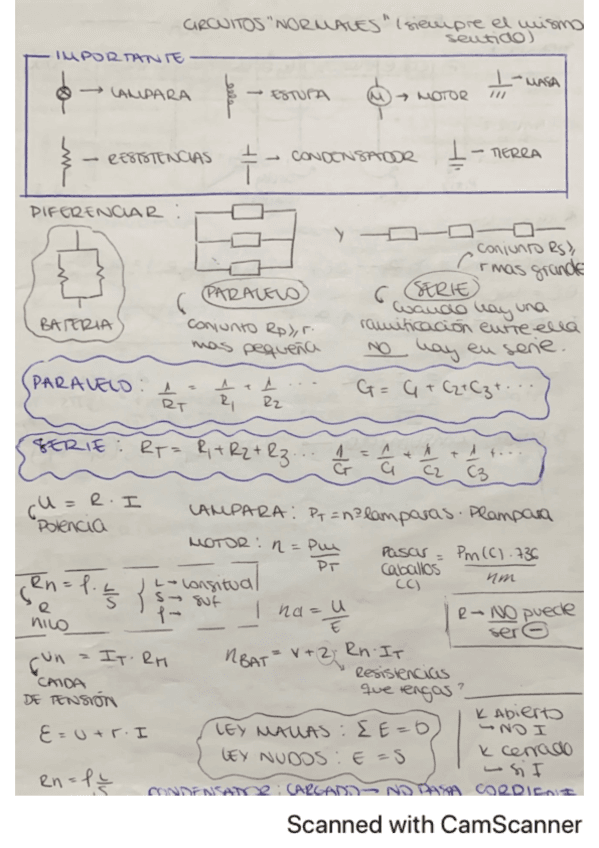 CIRCUITOS "NORMALES" (siempre el mismo
sentido)
IMPORTANTE
→ LAMPARA
→ ESTUFA
M → MOTOR
→ MASA
→ RESISTENCIAS
→ CONDENSATOR
→ TIERRA
DIFERENCIAR :
y
BATERIA
PARALELO
conjunto Rp>, r.
mas pequeña
conjunto Rs>,
r mas grande
SERIE
cuando hay una
ramificación entre ella
NO hay en serie.
PARALELO : 1/RT = 1/R1 + 1/R2 ... CT = C1 + C2 + C3 + ...
SERIE : RT = R1 + R2 + R3 ... 1/CT = 1/C1 + 1/C2 + 1/C3 + ...
U = R · I
Potencia
LAMPARA : PT = nº lamparas · Plampara
MOTOR : n = Pm/PT
Pasar caballos (C) = Pm(C) · 736 / nm
Rn = ρ · L/S
R
HILO
L → Longitud
S → sup
ρ →
na = U/E
R → NO puede
ser ⊖
Un = IT · RH
CAIDA
DE TENSIÓN
nBAT = V + 2 Rn · IT
Resistencias
que tengas?
E = U + r · I
LEY MALLAS : Σ E = 0
LEY NUDOS : E = S
K Abierto
→ NO I
K cerrado
→ Si I
Rn = ρ L/S
CONDENSATOR : CARGADO → NO PASA CORRIENTE
Scanned with CamScanner